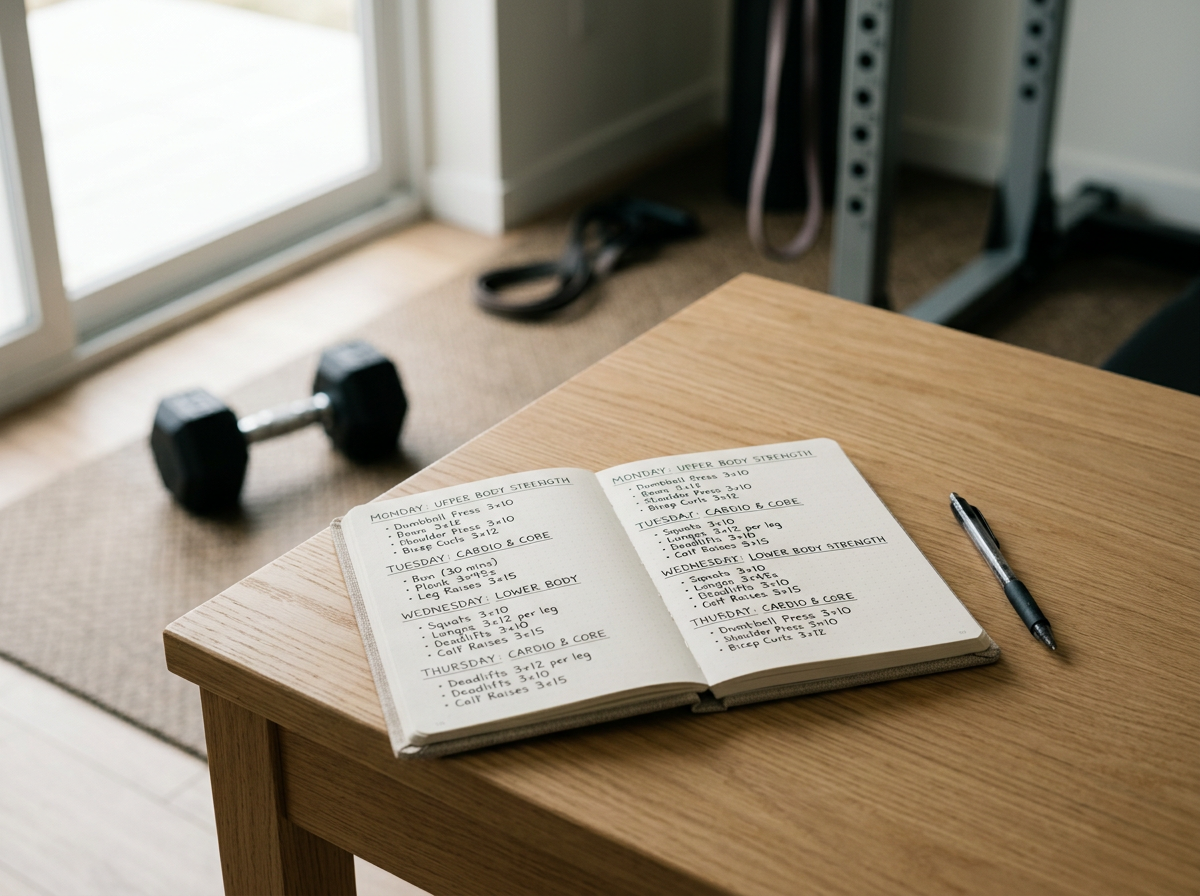 MONDAY: UPPER BODY STRENGTH
• Dumbbell Press 3x10
• Rows 3x12
• Shoulder Press 3x10
• Bicep Curls 3x12
TUESDAY: CARDIO & CORE
• Run (30 mins)
• Plank 3x45s
• Leg Raises 3x15
WEDNESDAY: LOWER BODY
• Squats 3x10
• Lunges 3x12 per leg
• Deadlifts 3x10
• Calf Raises 3x15
THURSDAY: CARDIO & CORE
• Deadlifts 3x12 per leg
• Deadlifts 3x10
• Calf Raises 3x15
MONDAY: UPPER BODY STRENGTH
• Dumbbell Press 3x10
• Rows
• Shoulder Press 3x10
• Bicep Curls 3x12
TUESDAY: CARDIO & CORE
• Squats 3x10
• Lunges 3x12 per leg
• Deadlifts 3x10
• Calf Raises 3x15
WEDNESDAY: LOWER BODY STRENGTH
• Squats 3x10
•
• Deadlifts 3x10
• Calf Raises 3x15
THURSDAY: CARDIO & CORE
• Dumbbell Press 3x10
• Shoulder Press 3x10
• Bicep Curls 3x12